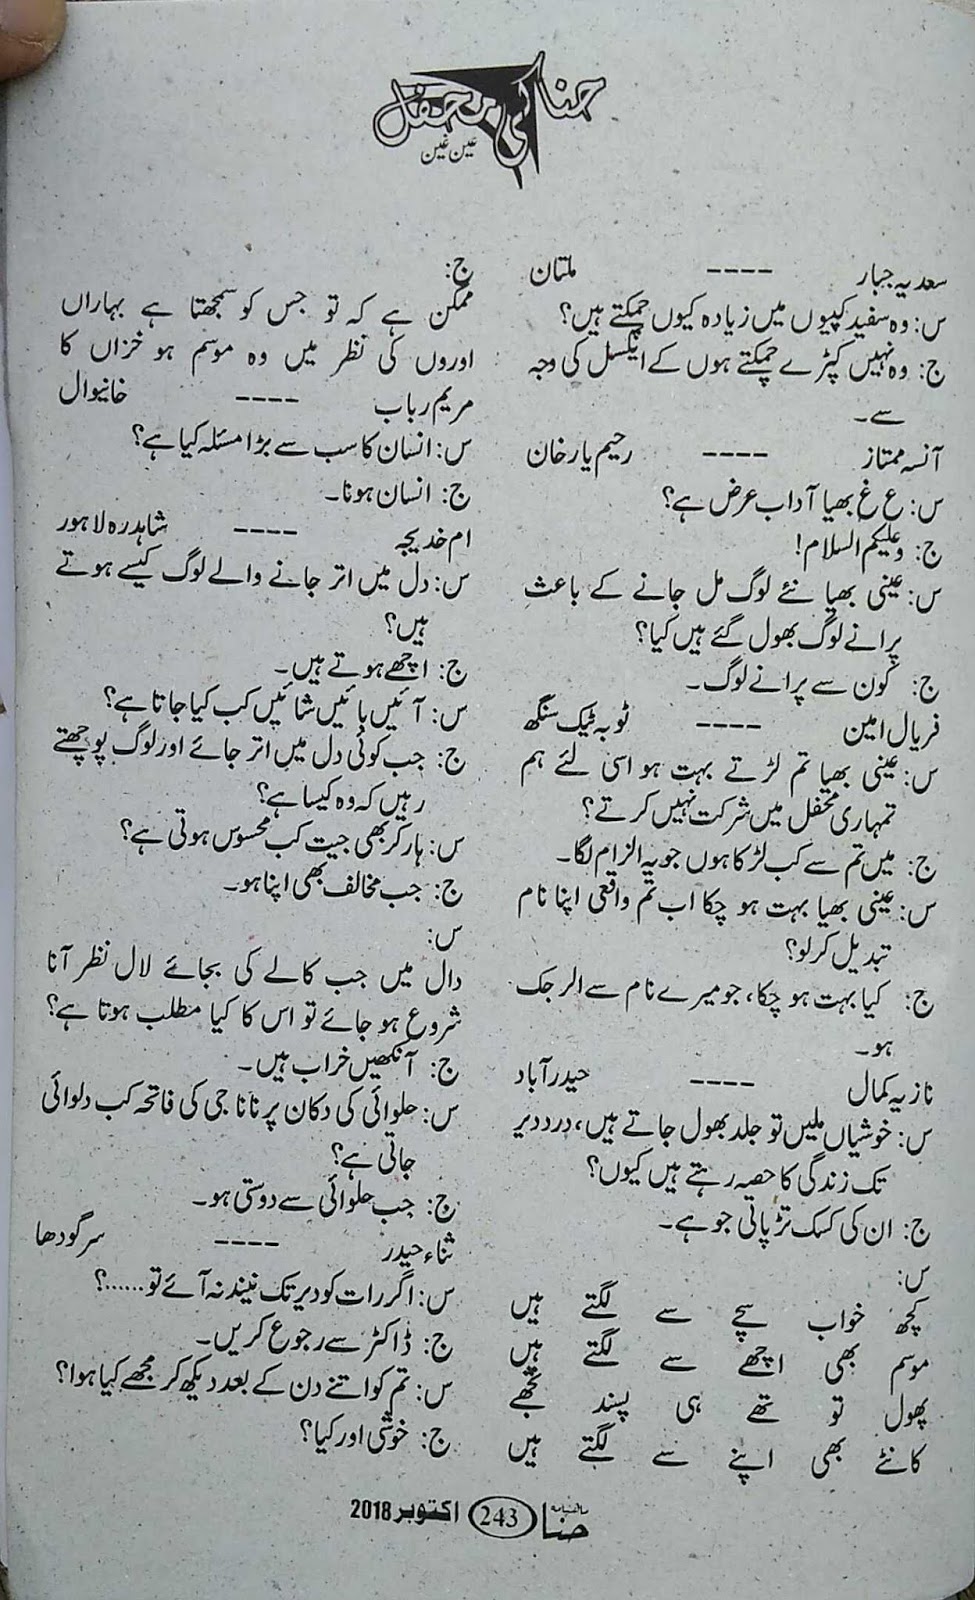 حنا کی محفل
عین غین
سعدیہ جبار ---- ملتان
س: وہ سفید کپڑوں میں زیادہ کیوں چمکتے ہیں؟
ج: وہ نہیں کپڑے چمکتے ہوں گے ایکسل کی وجہ
سے۔
آنسہ ممتاز ---- رحیم یار خان
س: ع غ بھیا آداب عرض ہے؟
ج: وعلیکم السلام!
س: عینی بھیا نئے لوگ مل جانے کے باعث
پرانے لوگ بھول گئے ہیں کیا؟
ج: کون سے پرانے لوگ۔
فریال امین ---- ٹوبہ ٹیک سنگھ
س: عینی بھیا تم لڑتے بہت ہو اسی لئے ہم
تمہاری محفل میں شرکت نہیں کرتے؟
ج: میں تم سے کب لڑکا ہوں جو یہ الزام لگا۔
س: عینی بھیا بہت ہو چکا اب تم واقعی اپنا نام
تبدیل کر لو؟
ج: کیا بہت ہو چکا، جو میرے نام سے الرجک
ہو۔
نازیہ کمال ---- حیدر آباد
س: خوشیاں ملیں تو جلد بھول جاتے ہیں، درد دیر
تک زندگی کا حصہ رہتے ہیں کیوں؟
ج: ان کی کسک تڑپاتی جو ہے۔
س:
کچھ خواب سچے سے لگتے ہیں
موسم بھی اچھے سے لگتے ہیں
پھول تو تھے ہی پسند مجھے
کانٹے بھی اپنے سے لگتے ہیں
ج:
ممکن ہے کہ تو جس کو سمجھتا ہے بہاراں
اوروں کی نظر میں وہ موسم ہو خزاں کا
مریم رباب ---- خانیوال
س: انسان کا سب سے بڑا مسئلہ کیا ہے؟
ج: انسان ہونا۔
ام خدیجہ ---- شاہدرہ لاہور
س: دل میں اتر جانے والے لوگ کیسے ہوتے
ہیں؟
ج: اچھے ہوتے ہیں۔
س: آئیں بائیں شائیں کب کیا جاتا ہے؟
ج: جب کوئی دل میں اتر جائے اور لوگ پوچھتے
رہیں کہ وہ کیسا ہے؟
س: ہار کر بھی جیت کب محسوس ہوتی ہے؟
ج: جب مخالف بھی اپنا ہو۔
س:
دال میں جب کالے کی بجائے لال نظر آنا
شروع ہو جائے تو اس کا کیا مطلب ہوتا ہے؟
ج: آنکھیں خراب ہیں۔
س: حلوائی کی دکان پر نانا جی کی فاتحہ کب دلوائی
جاتی ہے؟
ج: جب حلوائی سے دوستی ہو۔
ثناء حیدر ---- سرگودھا
س: اگر رات کو دیر تک نیند نہ آئے تو......؟
ج: ڈاکٹر سے رجوع کریں۔
س: تم کو اتنے دن کے بعد دیکھ کر مجھے کیا ہوا؟
ج: خوشی اور کیا؟
ماہنامہ حنا 243 اکتوبر 2018